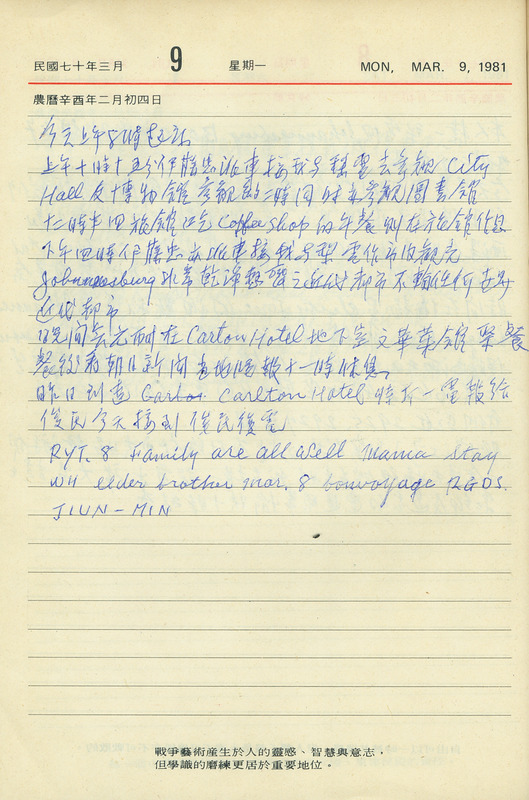 民國七十年三月 9 星期一 MON, MAR. 9, 1981
農曆辛酉年二月初四日
今天上午8時起床
上午十時十五分伊藤忠派車接我與梨雲去參觀 City
Hall 及博物館參觀約二時間 時亦參觀圖書館
十二時半回旅館吃 Coffee Shop 的午餐 則在旅館休息
下午四時伊藤忠亦派車接我與梨雲作市內觀光
Johannesburg 非常乾淨整齊之近代都市不輸任何世界
近代都市
晚間 在 Carton Hotel 地下室文華菜館聚餐
餐後看朝日新聞 晚報十一時休息
昨日到達 Carlton Hotel 時打一電報給
俊民今天接到俊民復電
RYT. 8 Family are all well Mama Stay
WH elder brother Mar. 8 bonvoyage RGDS.
JIUN-MIN
戰爭藝術產生於人的靈感、智慧與意志,
但學識的磨練更居於重要地位。